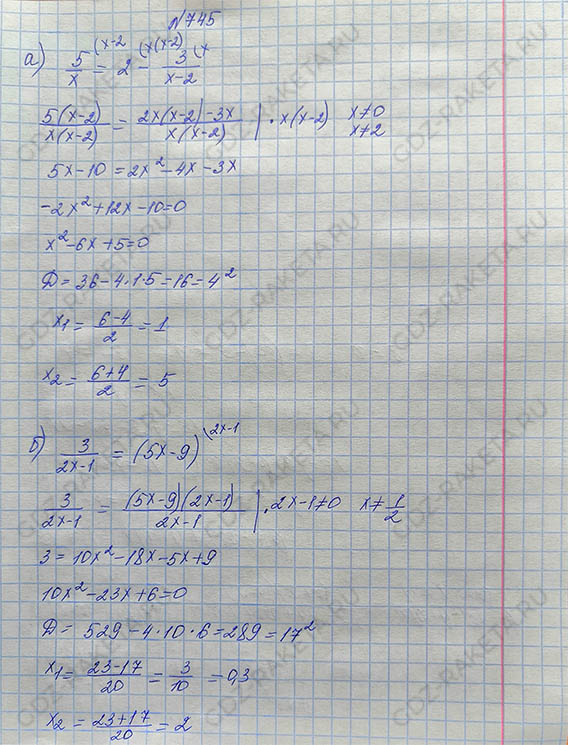 №745
а) 5/x (x-2 = 2 (x(x-2) - 3/(x-2) (x
5(x-2)/x(x-2) = 2x(x-2)-3x/x(x-2) | · x(x-2) x≠0
x≠2
5x-10=2x²-4x-3x
-2x²+12x-10=0
x²-6x+5=0
Д=36-4·1·5=16=4²
x1=(6-4)/2=1
x2=(6+4)/2=5
б) 3/(2x-1) = (5x-9) (2x-1
3/(2x-1) = (5x-9)(2x-1)/(2x-1) | · 2x-1≠0 x≠1/2
3=10x²-18x-5x+9
10x²-23x+6=0
Д=529-4·10·6=289=17²
x1=(23-17)/20=3/10=0,3
x2=(23+17)/20=2
GDZ-RAKETA.RU